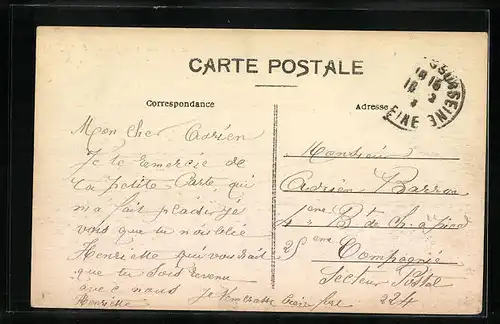 CARTE POSTALE
Correspondance
Adresse
Mon cher Adrien
Je te remercie de
ta petite Carte qui
m'a fait plaisir je
vois que tu n'oublie
Henriette qui voudrait
que tu sois revenu
avec nous Je t'embrasse bien fort
Henriette
Monsieur
Adrien
4eme Bt de Ch. à pied
25eme Compagnie
Secteur Postal
224